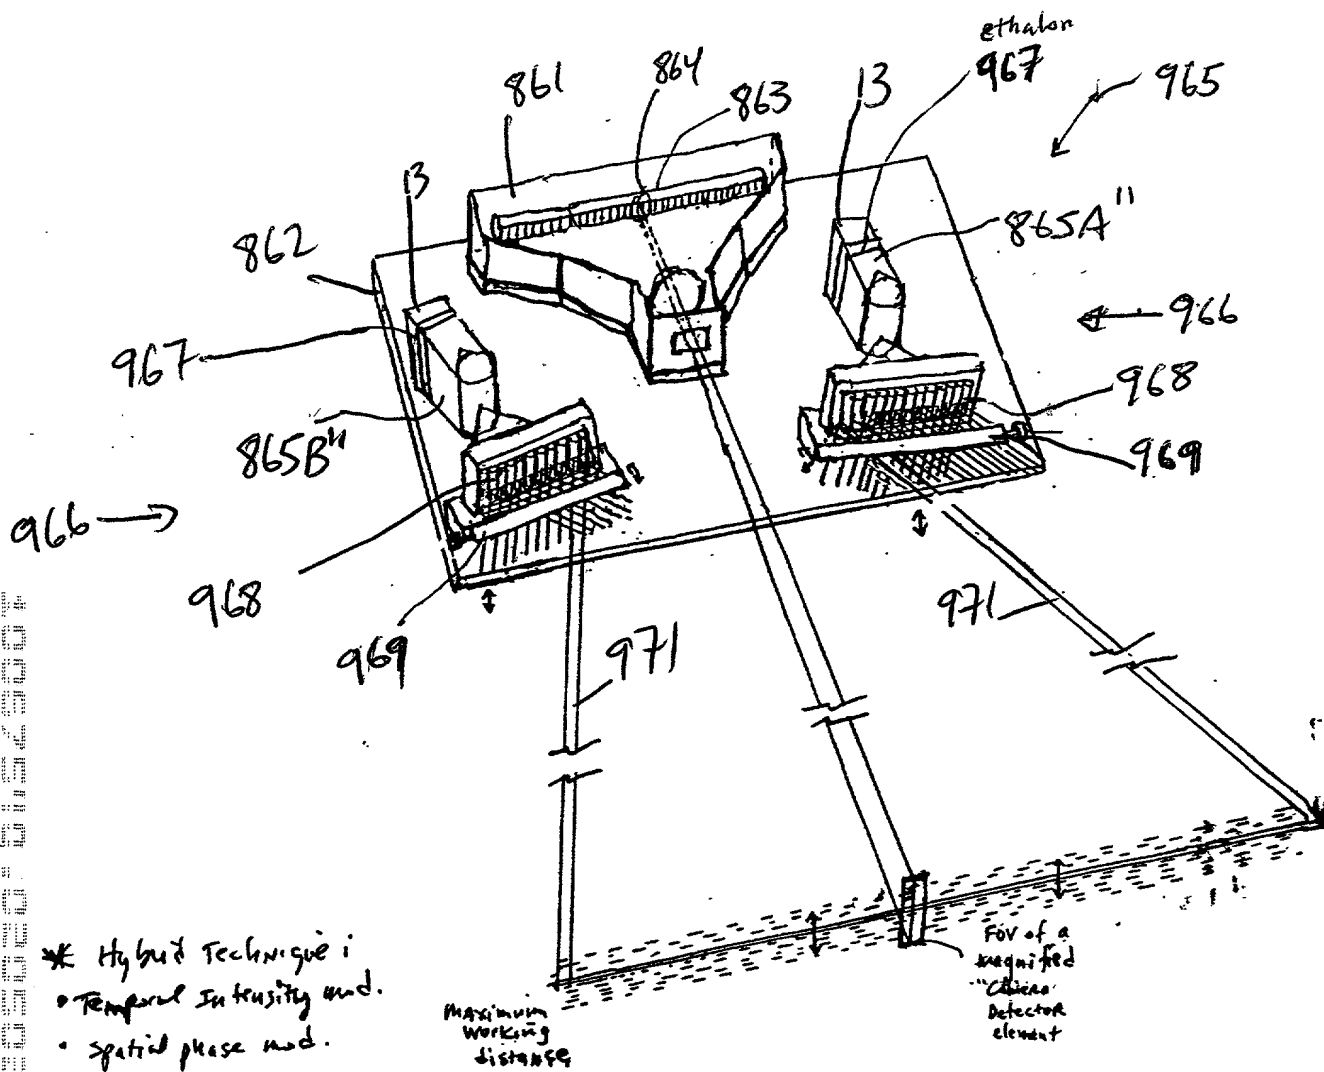 ethalon
967
861
864
863
13
965
13
862
865A"
966
967
968
865B"
969
966
968
969
971
971
* Hybrid Technique:
• Temporal Intensity mod.
• Spatial phase mod.
Maximum
Working
distance
FOV of a
magnified
Detector
element